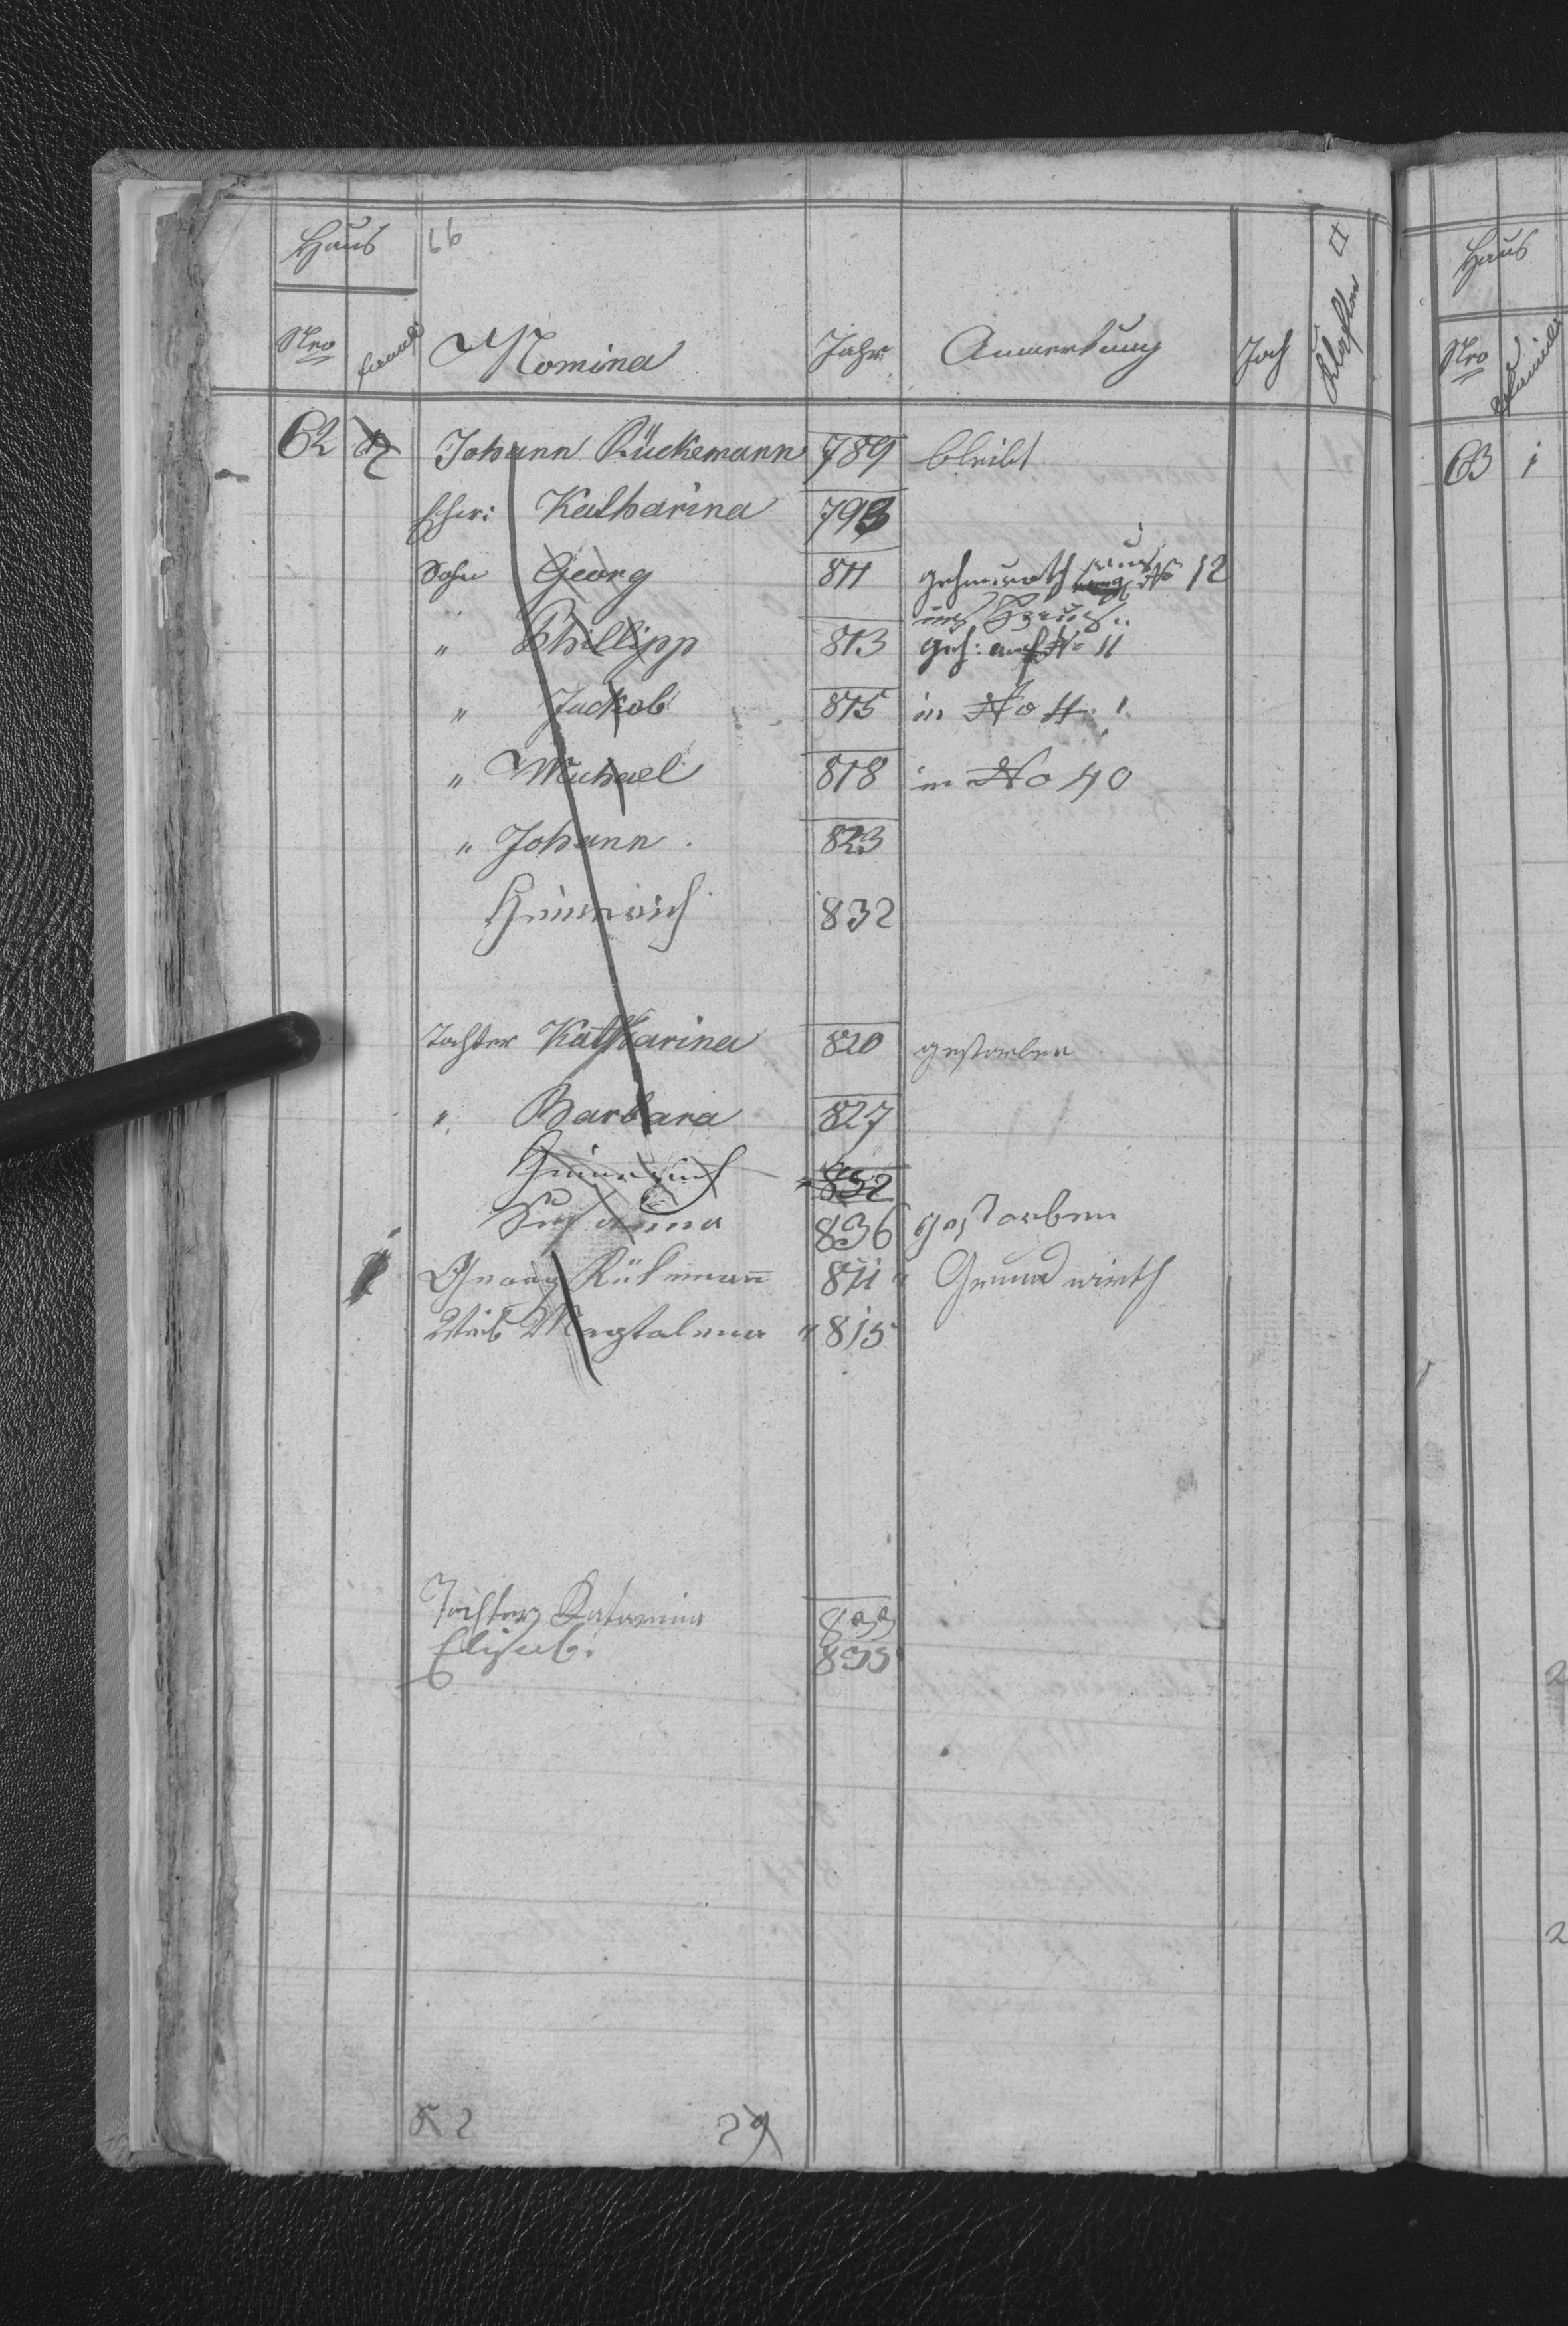 Haus 66
Nro Famil Nomina Jahr Anmerkung Joch Klafter
62 Johann Rückemann 789 bleibt
Ehew: Katharina 793
Sohn Georg 811 geheurath No 12
" Phillipp 813 geh: auf No 11
" Jackob 815 in No
" Michael 818 in No 40
" Johann 823
Heinerich 832
Tochter Katharina 820 gestorben
" Barbara 827
Heinerich 832
Susanna 836 gestorben
Georg Rükemann 811 " Grundwirth
Weib Magtalena " 815
Tochter Katarina 833
Elisab. 835
52 29
Haus
Nro Familie
63 1
2
2